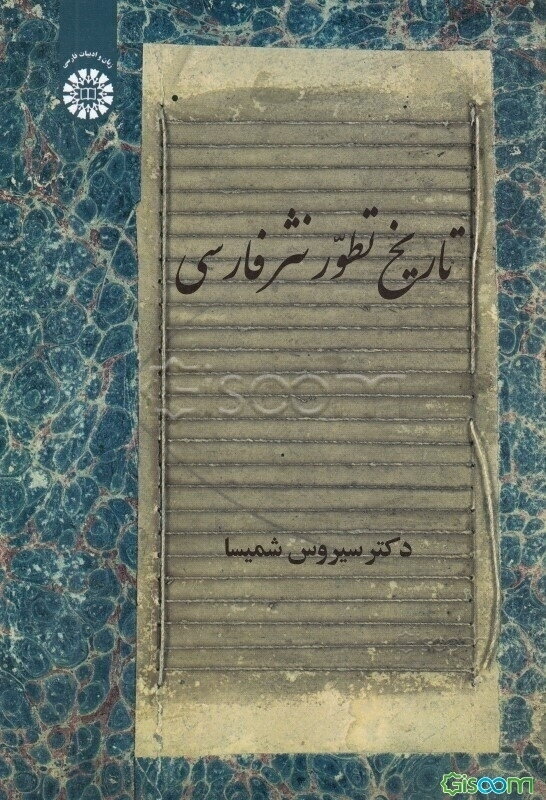 زبان و ادبیات فارسی
تاریخ تطوّر نثر فارسی
Giscom
دکتر سیروس شمیسا
Giscom